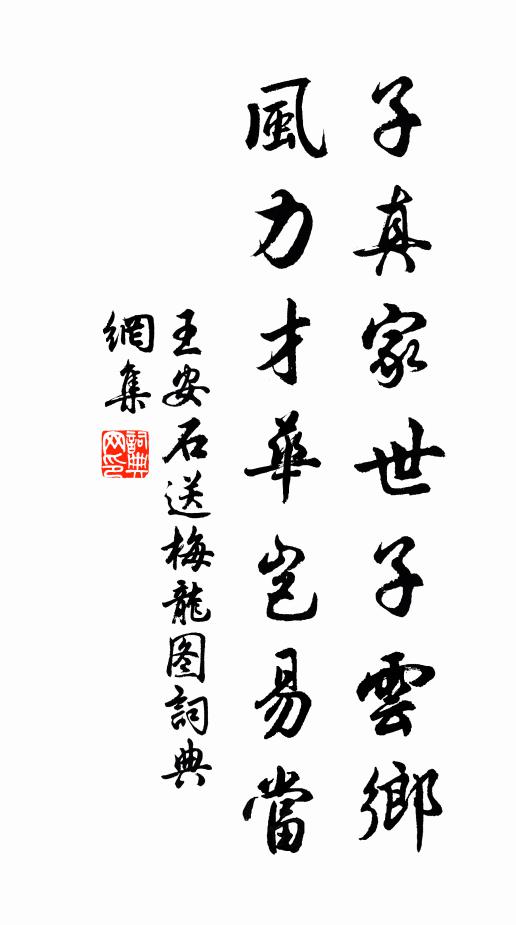 子真家世子雲鄉
風力才華豈易當
王安石送梅龍图詞典
網集
詞典網印